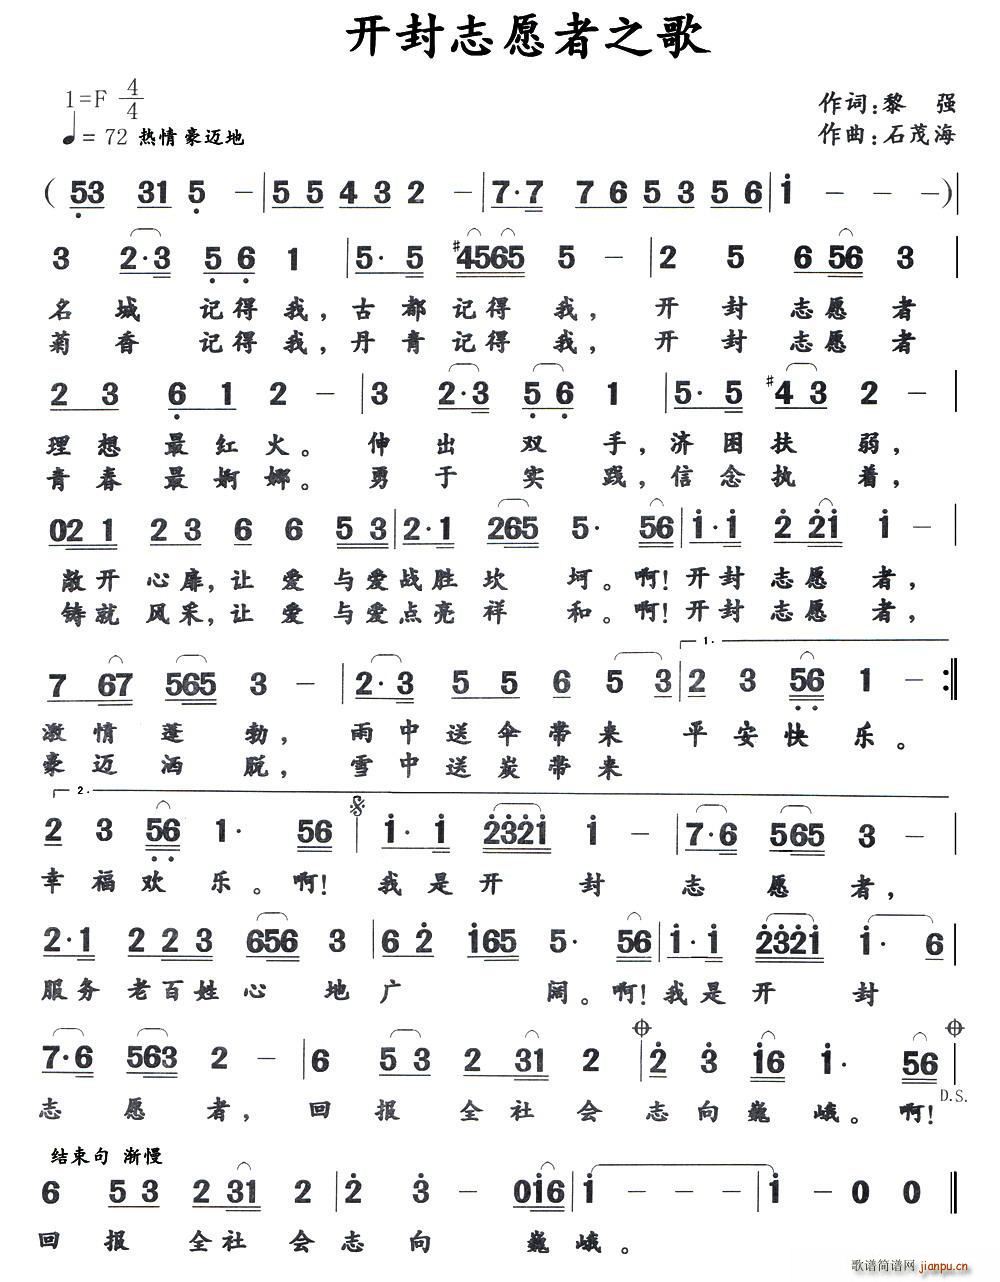 开封志愿者之歌
1=F 4/4
作词:黎 强
♩= 72 热情 豪迈地
作曲:石茂海
( 53 31 5 - | 55 43 2 - | 7·7 76 53 56 | i - - - ) |
3 2·3 56 1 | 5· 5 #4565 5 - | 2 5 6 56 3 |
名 城 记得 我, 古 都 记得 我, 开 封 志愿 者
菊 香 记得 我, 丹 青 记得 我, 开 封 志愿 者
2 3 6 1 2 - | 3 2·3 56 1 | 5· 5 #4 3 2 - |
理 想 最 红 火。 伸 出 双 手, 济 困 扶 弱,
青 春 最 婀 娜。 勇 于 实 践, 信 念 执 着,
021 23 6 6 53 | 2·1 265 5· 56 | i·i 2 2i i - |
敞开 心扉, 让 爱 与爱 战胜 坎 坷。 啊! 开封 志愿 者,
铸就 风采, 让 爱 与爱 点亮 祥 和。 啊! 开封 志愿 者,
1.
7 67 565 3 - | 2·3 5 5 6 5 3 | 2 3 56 1 - :||
激 情 蓬 勃, 雨中 送 伞 带 来 平 安 快 乐。
豪 迈 洒 脱, 雪中 送 炭 带 来
2.
2 3 56 1· 56 | i·i 232i i - | 7·6 565 3 - |
幸 福 欢 乐。 啊! 我是 开 封 志 愿 者,
2·1 2 2 3 656 3 | 6 2 i65 5· 56 | i·i 232i i· 6 |
服务 老百姓 心 地 广 阔。 啊! 我是 开 封
7·6 563 2 - | 6 53 2 31 2 | 2 3 i6 i· 56 |
志 愿 者, 回 报 全 社 会 志 向 巍 峨。 啊!
D.S.
结束句 渐慢
6 53 2 31 2 | 2 3 - 0i6 | i - - - | i - 0 0 ||
回 报 全社 会 志 向 巍 峨。
歌谱简谱网
jianpu.cn